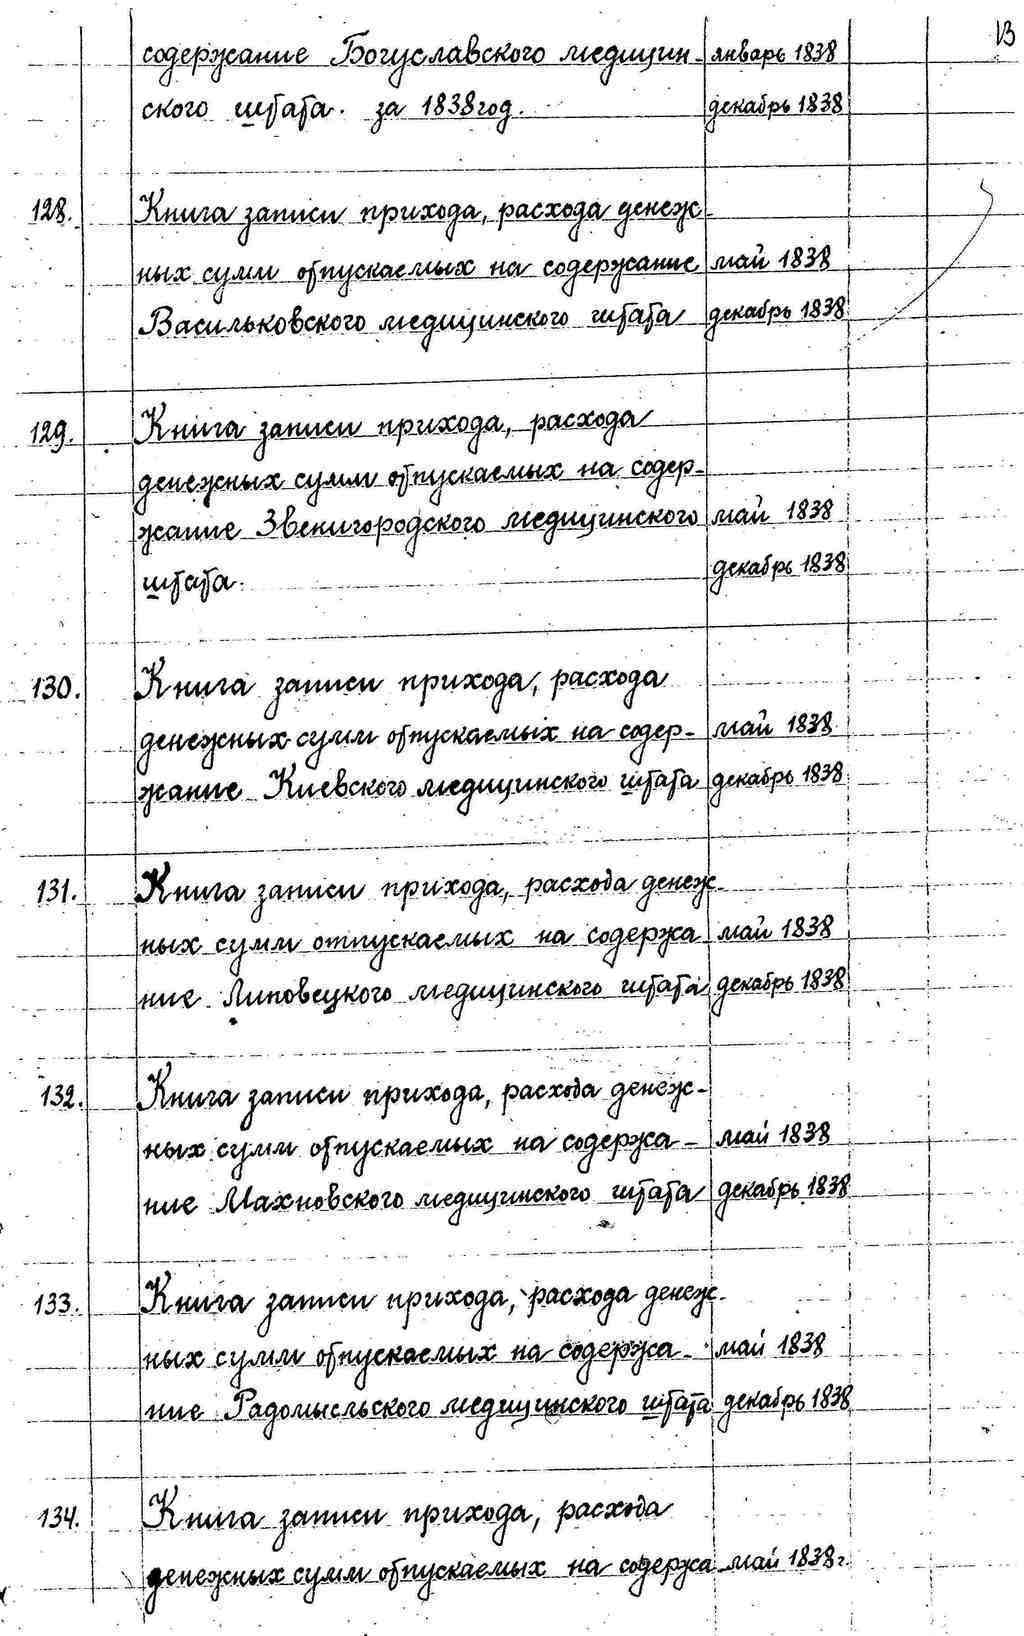 13
содержание Богуславского медицин- январь 1838
ского штата. за 1838 год. декабрь 1838
128. Книга записи прихода, расхода денеж-
ных сумм отпускаемых на содержание май 1838
Васильковского медицинского штата декабрь 1838
129. Книга записи прихода, расхода
денежных сумм отпускаемых на содер-
жание Звенигородского медицинского май 1838
штата. декабрь 1838
130. Книга записи прихода, расхода
денежных сумм отпускаемых на содер- май 1838
жание Киевского медицинского штата декабрь 1838
131. Книга записи прихода, расхода денеж-
ных сумм отпускаемых на содержа май 1838
ние Липовецкого медицинского штата декабрь 1838
132. Книга записи прихода, расхода денеж-
ных сумм отпускаемых на содержа- май 1838
ние Махновского медицинского штата декабрь 1838
133. Книга записи прихода, расхода денеж-
ных сумм отпускаемых на содержа- май 1838
ние Радомысльского медицинского штата декабрь 1838
134. Книга записи прихода, расхода
денежных сумм отпускаемых на содержа- май 1838 г.